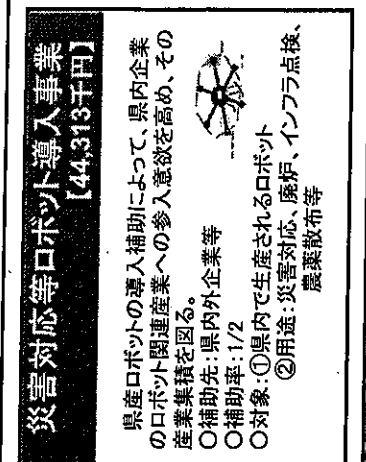 災害対応等ロボット導入事業
【44,313千円】
県産ロボットの導入補助によって、県内企業
のロボット関連産業への参入意欲を高め、その
産業集積を図る。
○補助先:県内外企業等
○補助率:1/2
○対象:①県内で生産されるロボット
②用途:災害対応、廃炉、インフラ点検、
農薬散布等